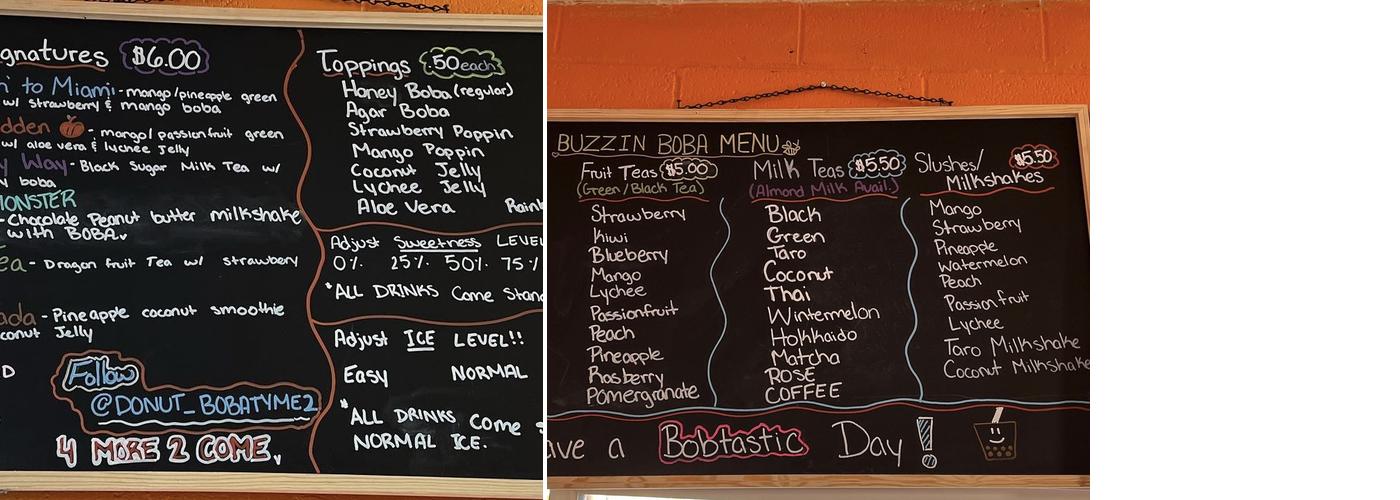 gnatures $6.00
n' to Miami - mango/pineapple green
w/ strawberry & mango boba
dden - mango/passionfruit green
w/ aloe vera & lychee Jelly
y Way - Black Sugar Milk Tea w/
y boba
MONSTER
- Chocolate Peanut butter milkshake
with BOBA
ea - Dragon fruit Tea w/ strawbery
ada - Pineapple coconut smoothie
conut Jelly
D
Follow
@DONUT_BOBATYME2
4 MORE 2 COME
Toppings .50 each
Honey Boba (regular)
Agar Boba
Strawberry Poppin
Mango Poppin
Coconut Jelly
Lychee Jelly
Aloe Vera Rainb
Adjust Sweetness LEVEL
0% 25% 50% 75%
*ALL DRINKS Come Stan
Adjust ICE LEVEL!!
Easy NORMAL
*ALL DRINKS Come s
NORMAL ICE.
BUZZIN BOBA MENU
Fruit Teas $5.00
(Green/Black Tea)
Strawberry
Kiwi
Blueberry
Mango
Lychee
Passionfruit
Peach
Pineapple
Rasberry
Pomergranate
Milk Teas $5.50
(Almond Milk Avail.)
Black
Green
Taro
Coconut
Thai
Wintermelon
Hokkaido
Matcha
ROSE
COFFEE
Slushes/ $5.50
Milkshakes
Mango
Strawberry
Pineapple
Watermelon
Peach
Passion fruit
Lychee
Taro Milkshake
Coconut Milkshake
ave a Bobtastic Day!